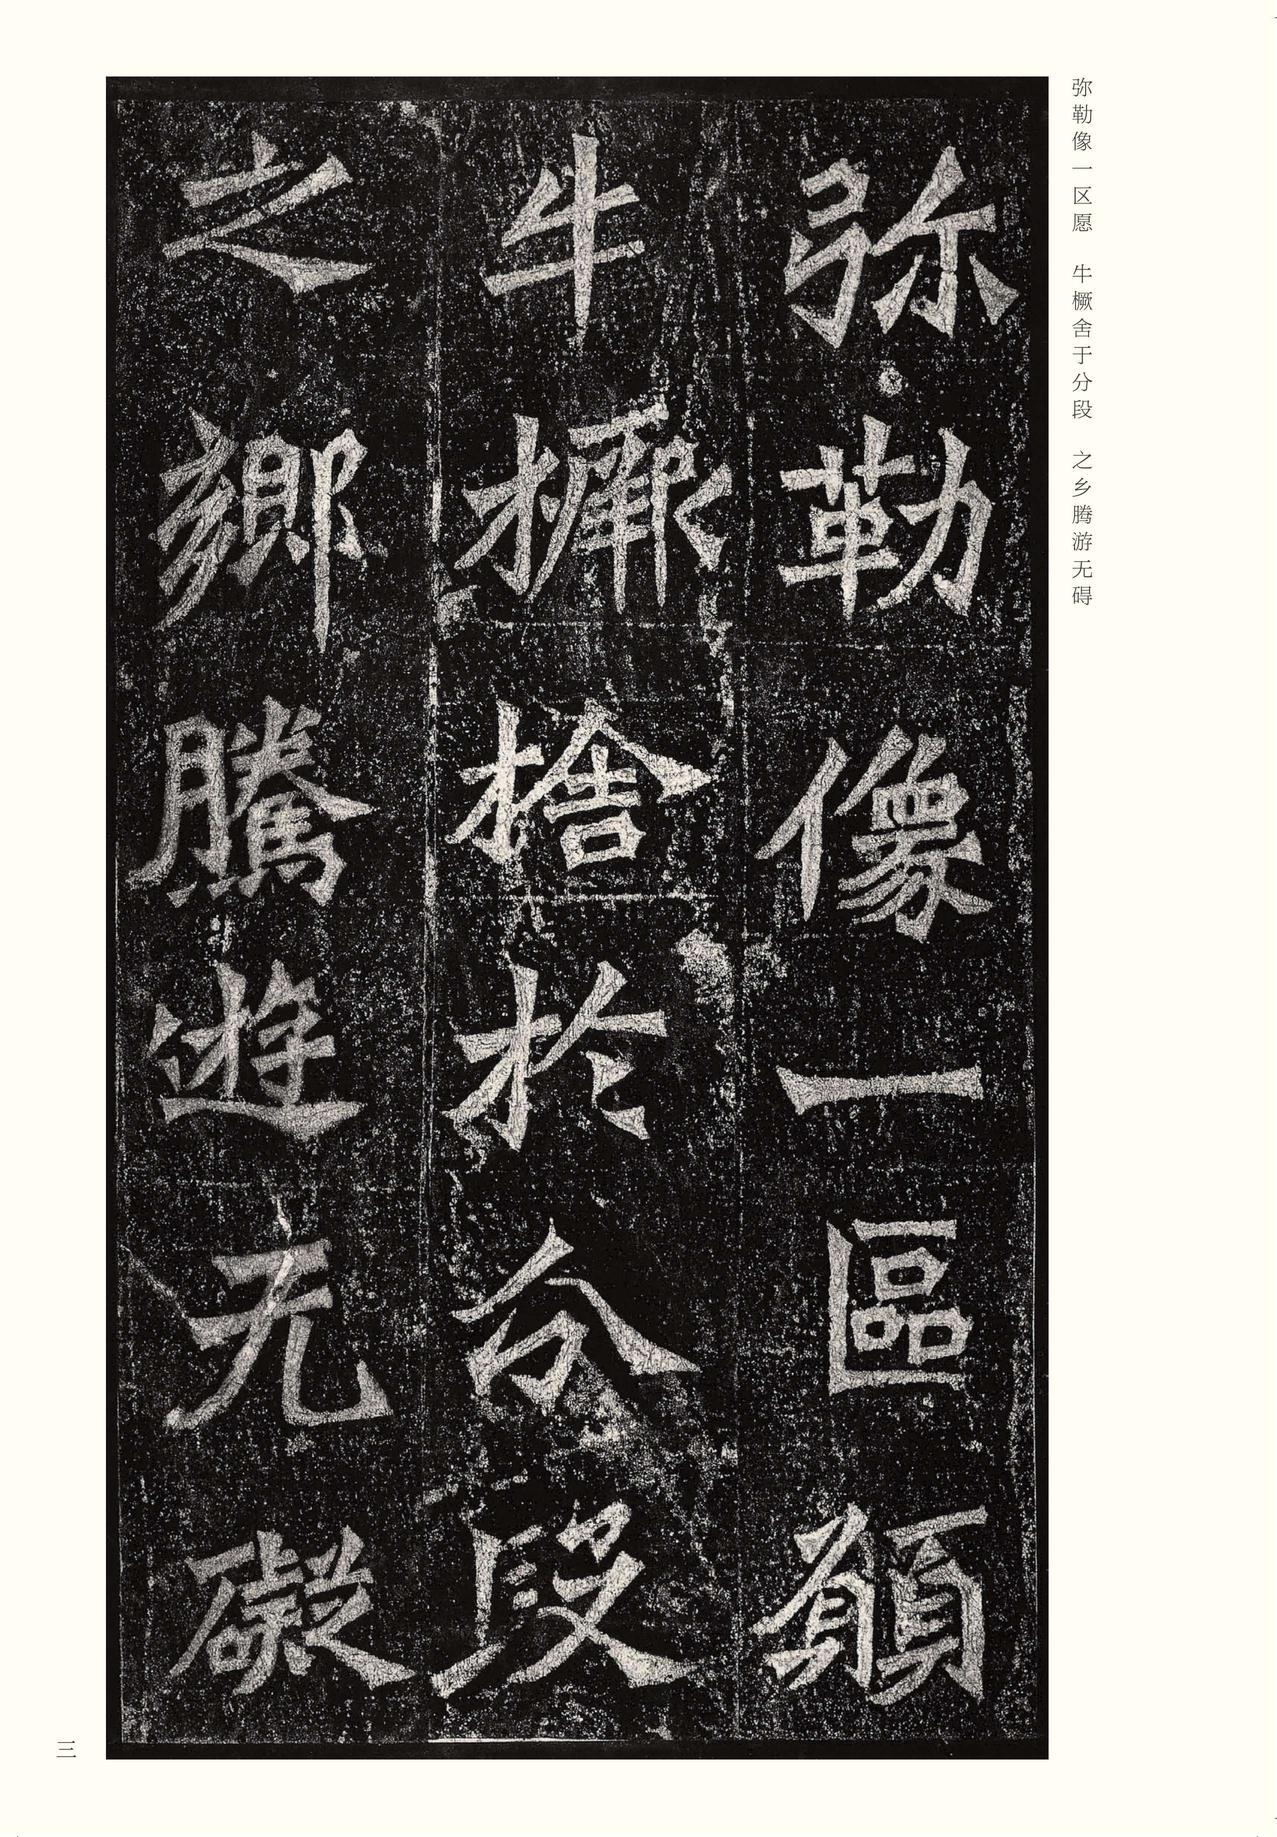 弥勒像一区愿　牛橛舍于分段　之乡腾游无碍
弥勒像一區願
牛橛捨於分段
之鄉騰遊无礙
三